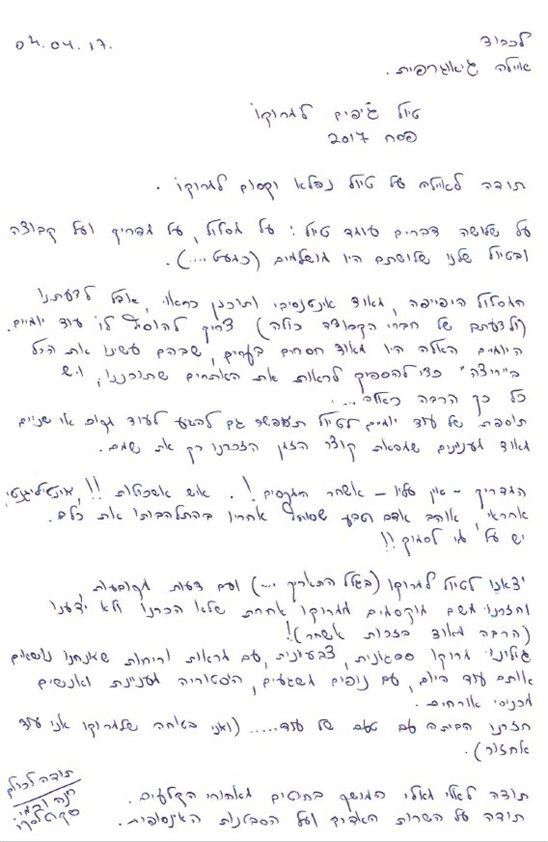 04.04.17.
לכבוד
איילה גיאוגרפית.
טיול ג'יפים למרוקו
פסח 2017
תודה לאיילה על טיול נפלא וקסום למרוקו.
על שלושה דברים עומד טיול: על מסלול, על מדריך ועל קבוצה
ובטיול שלנו שלושתם היו מושלמים (כמעט....).
המסלול היפייפה, מאוד אינטנסיבי ותוכנן כראוי, אבל לדעתנו
(ולדעתם של חברי הקבוצה כולה) צריך להוסיף לו עוד יומיים.
היומיים האלה היו מאוד חסרים בעתים, שבהם עשינו את הכל
ב"ריצה" כדי להספיק לראות את האתרים שתוכננו, ויש
כל כך הרבה כאלה....
תוספת של עוד יומיים לטיול תאפשר גם להגיע לעוד מקום או שניים
מאוד מעניינים שמפאת קוצר הזמן הזכרנו רק את שמם.
המדריך - אין עליו - אשחר המקסים!. איש אשכולות!!, אינטליגנטי,
אחראי, אוהב אדם וטבע שסוחף אחריו בהתלהבותו את כולם.
יש על מי לסמוך!!
יצאנו לטיול למרוקו (בגלל התאריך ....) ועם דעות מקובעות,
וחזרנו משם מוקסמים ממרוקו אחרת שלא הכרנו ולא ידענו
(הרבה מאוד בזכות אשחר)!
גילינו מרוקו ססגונית, צבעונית, עם מראות וריחות שאנחנו נושאים
אותם עוד היום, עם נופים משגעים, היסטוריה מעניינת ואנשים
מכניסי אורחים.
חזרנו הביתה עם טעם של עוד..... (ואני בטוחה שלמרוקו אני עוד
אחזור).
תודה לאלי מאלי המושך בחוטים מאחורי הקלעים.
תודה על השרות האדיב ועל הסבלנות האינסופית.
תודה לכולם
חנה ובמי